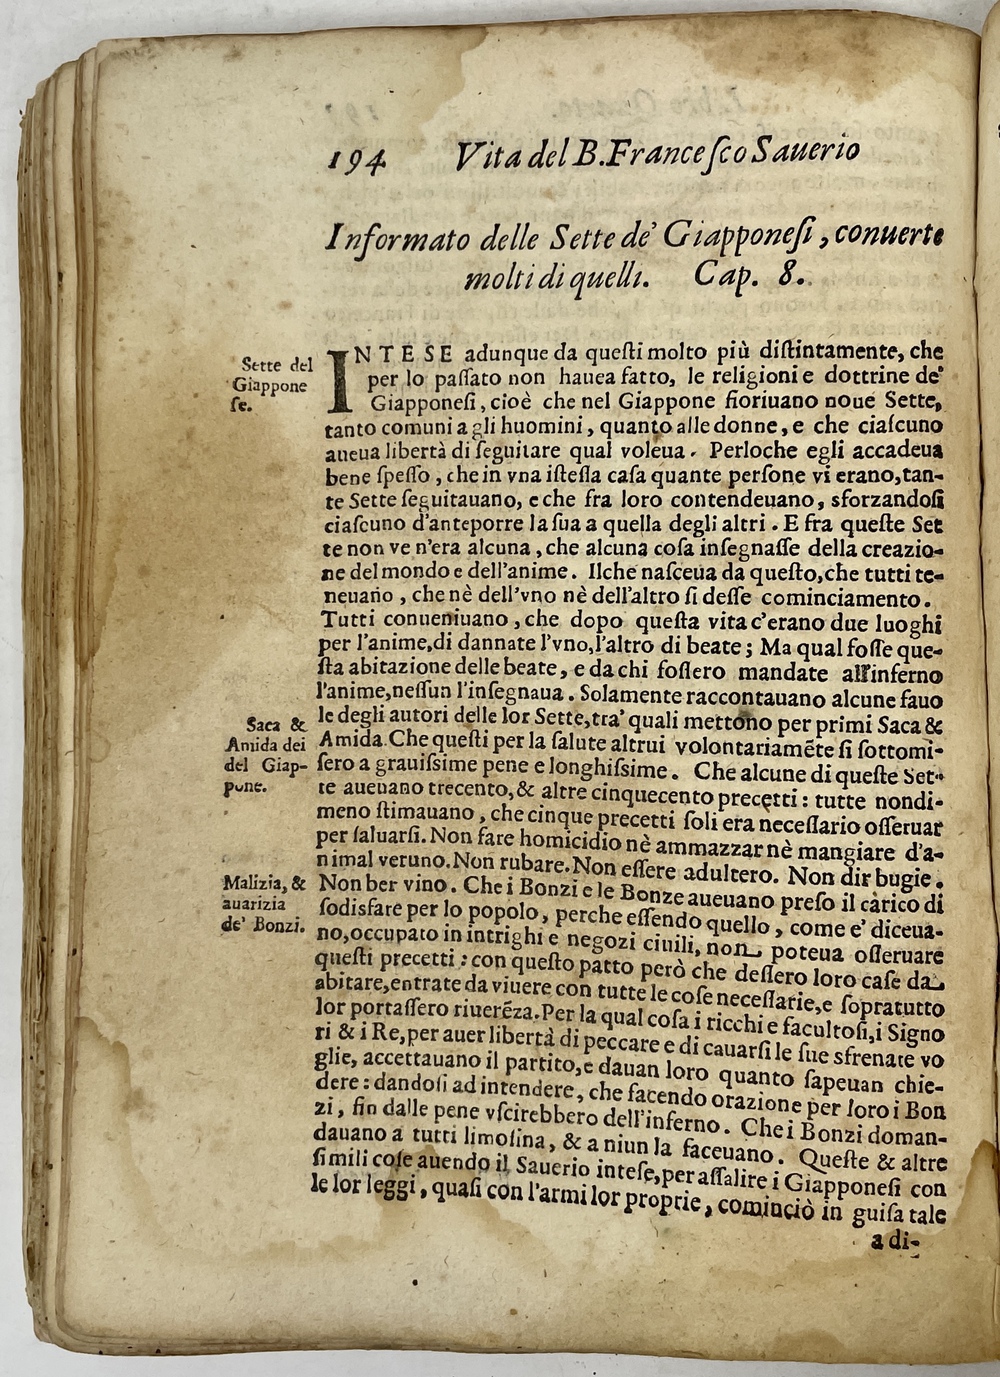 194 Vita del B. Francesco Sauerio
Informato delle Sette de' Giapponeſi, conuerte
molti di quelli. Cap. 8.
Sette del
Giappone
ſe.
INTESE adunque da queſti molto più diſtintamente, che
per lo paſſato non hauea fatto, le religioni e dottrine de'
Giapponeſi, cioè che nel Giappone fioriuano noue Sette,
tanto comuni a gli huomini, quanto alle donne, e che ciaſcuno
aueua libertà di ſeguitare qual voleua. Perloche egli accadeua
bene ſpeſſo, che in vna iſteſſa caſa quante perſone vi erano, tan-
te Sette ſeguitauano, e che fra loro contendeuano, sforzandoſi
ciaſcuno d'anteporre la ſua a quella degli altri. E fra queſte Set
te non ve n'era alcuna, che alcuna coſa inſegnaſſe della creazio-
ne del mondo e dell'anime. Ilche naſceua da queſto, che tutti te-
neuano, che nè dell'vno nè dell'altro ſi deſſe cominciamento.
Tutti conueniuano, che dopo queſta vita c'erano due luoghi
per l'anime, di dannate l'vno, l'altro di beate; Ma qual foſſe que-
ſta abitazione delle beate, e da chi foſſero mandate all'inferno
l'anime, neſſun l'inſegnaua. Solamente raccontauano alcune fauo
le degli autori delle lor Sette, tra' quali mettono per primi Saca &
Saca &
Amida dei
del Giap-
pone.
Amida. Che queſti per la ſalute altrui volontariamẽte ſi ſottomi-
ſero a grauiſsime pene e longhiſsime. Che alcune di queſte Set-
te aueuano trecento, & altre cinquecento precetti: tutte nondi-
meno ſtimauano, che cinque precetti ſoli era neceſſario oſſeruar
per ſaluarſi. Non fare homicidio nè ammazzar nè mangiare d'a-
nimal veruno. Non rubare. Non eſſere adultero. Non dir bugie.
Malizia, &
auarizia
de' Bonzi.
Non ber vino. Che i Bonzi e le Bonze aueuano preſo il càrico di
ſodisfare per lo popolo, perche eſſendo quello, come e' diceua-
no, occupato in intrighi e negozi ciuili, non poteua oſſeruare
queſti precetti: con queſto patto però che deſſero loro caſe da
abitare, entrate da viuere con tutte le coſe neceſſarie, e ſopratutto
lor portaſſero riuerẽza. Per la qual coſa i ricchi e facultoſi, i Signo
ri & i Re, per auer libertà di peccare e di cauarſi le ſue sfrenate vo
glie, accettauano il partito, e dauan loro quanto ſapeuan chie-
dere: dandoſi ad intendere, che facendo orazione per loro i Bon
zi, fin dalle pene vſcirebbero dell'inferno. Che i Bonzi doman-
dauano a tutti limoſina, & a niun la faceuano. Queſte & altre
ſimili coſe auendo il Sauerio inteſe, per aſſalire i Giapponeſi con
le lor leggi, quaſi con l'armi lor proprie, cominciò in guiſa tale
a di-